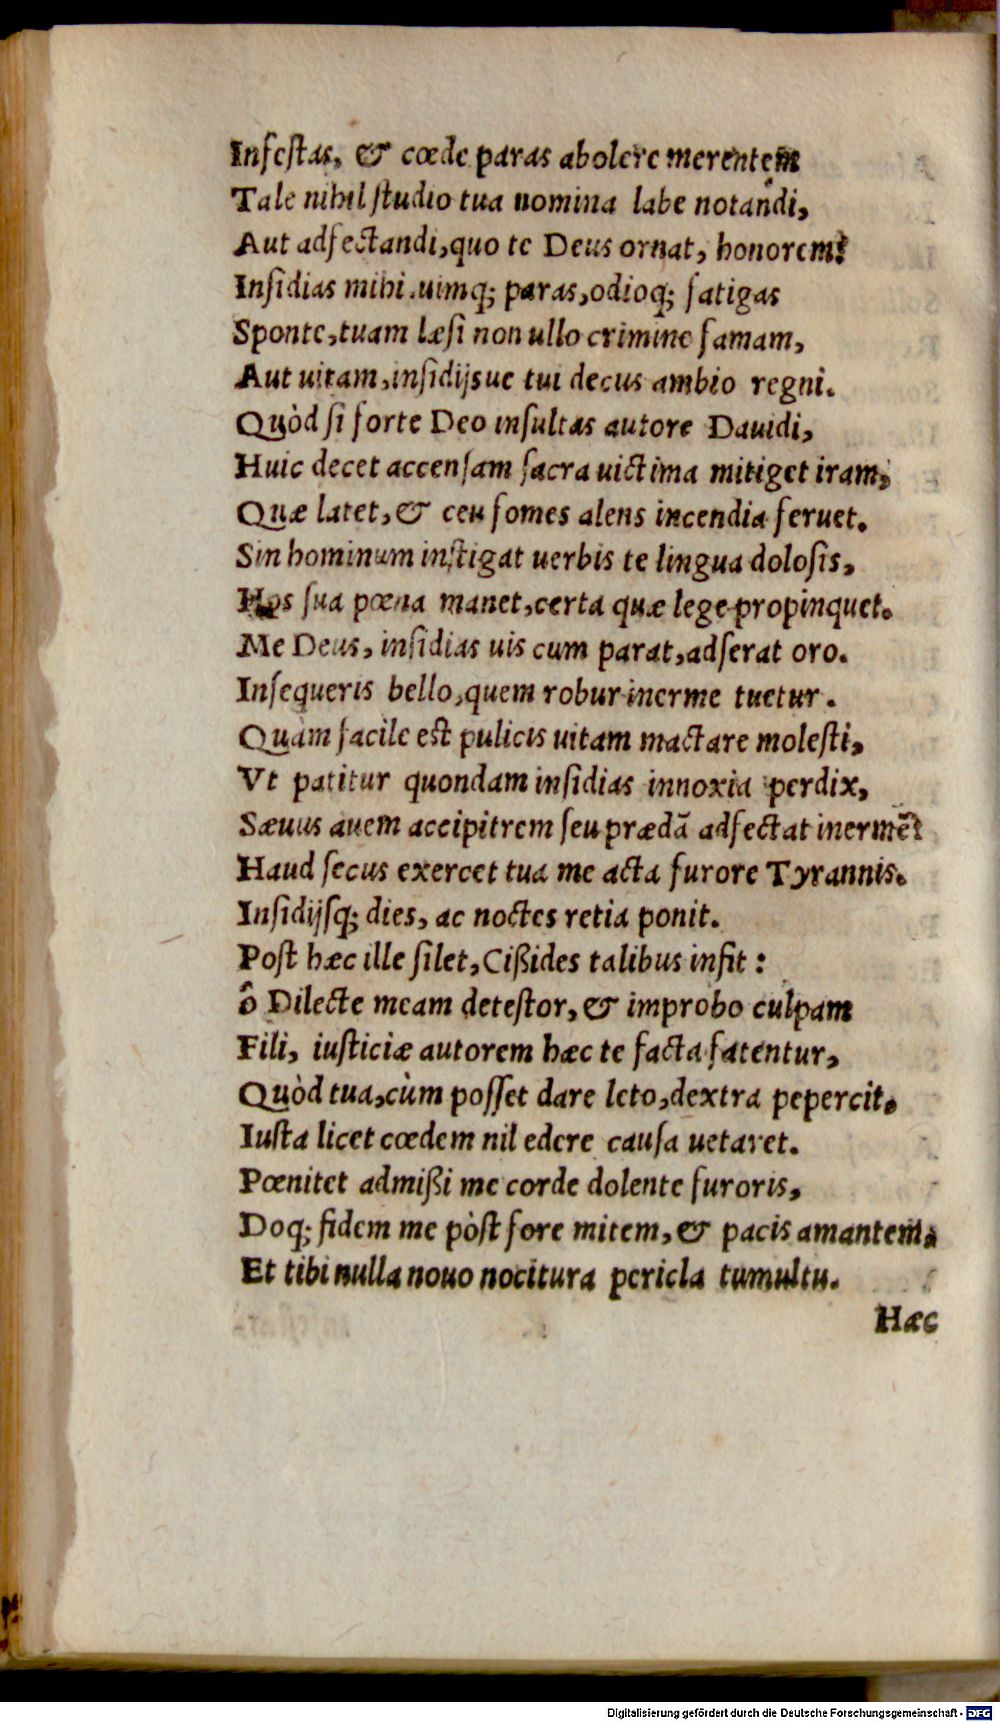 Infestas, & cœde paras abolere merentem
Tale nihil studio tua nomina labe notandi,
Aut adfectandi, quo te Deus ornat, honorem?
Insidias mihi uimq; paras, odioq; fatigas
Sponte, tuam læsi non ullo crimine famam,
Aut uitam, insidijsue tui decus ambio regni.
Quòd si forte Deo insultas autore Dauidi,
Huic decet accensam sacra uictima mitiget iram,
Quæ latet, & ceu fomes alens incendia feruet.
Sin hominum instigat uerbis te lingua dolosis,
Hos sua pœna manet, certa quæ lege propinquet.
Me Deus, insidias uis cum parat, adserat oro.
Insequeris bello, quem robur inerme tuetur.
Quàm facile est pulicis uitam mactare molesti,
Vt patitur quondam insidias innoxia perdix,
Sæuus auem accipitrem seu prædā adfectat inermē:
Haud secus exercet tua me acta furore Tyrannis.
Insidijsq; dies, ac noctes retia ponit.
Post hæc ille silet, Cißides talibus infit:
ô Dilecte meam detestor, & improbo culpam
Fili, iusticiæ autorem hæc te facta fatentur,
Quòd tua, cùm posset dare leto, dextra pepercit.
Iusta licet cœdem nil edere causa uetaret.
Pœnitet admißi me corde dolente furoris,
Doq; fidem me pòst fore mitem, & pacis amantem,
Et tibi nulla nouo nocitura pericla tumultu.
Hæc
Digitalisierung gefördert durch die Deutsche Forschungsgemeinschaft - DFG